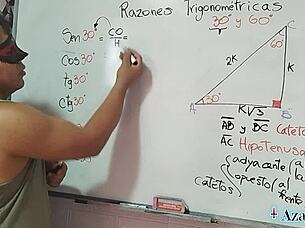 Razones Trigonométricas
30° y 60°
Sen 30° = CO/H =
Cos 30°
tg 30°
Ctg 30°
60°
2K
K
30°
K√3
AB y BC Catet
AC Hipotenusa
Catetos
adyacente
opuesto
al
frente
Aza